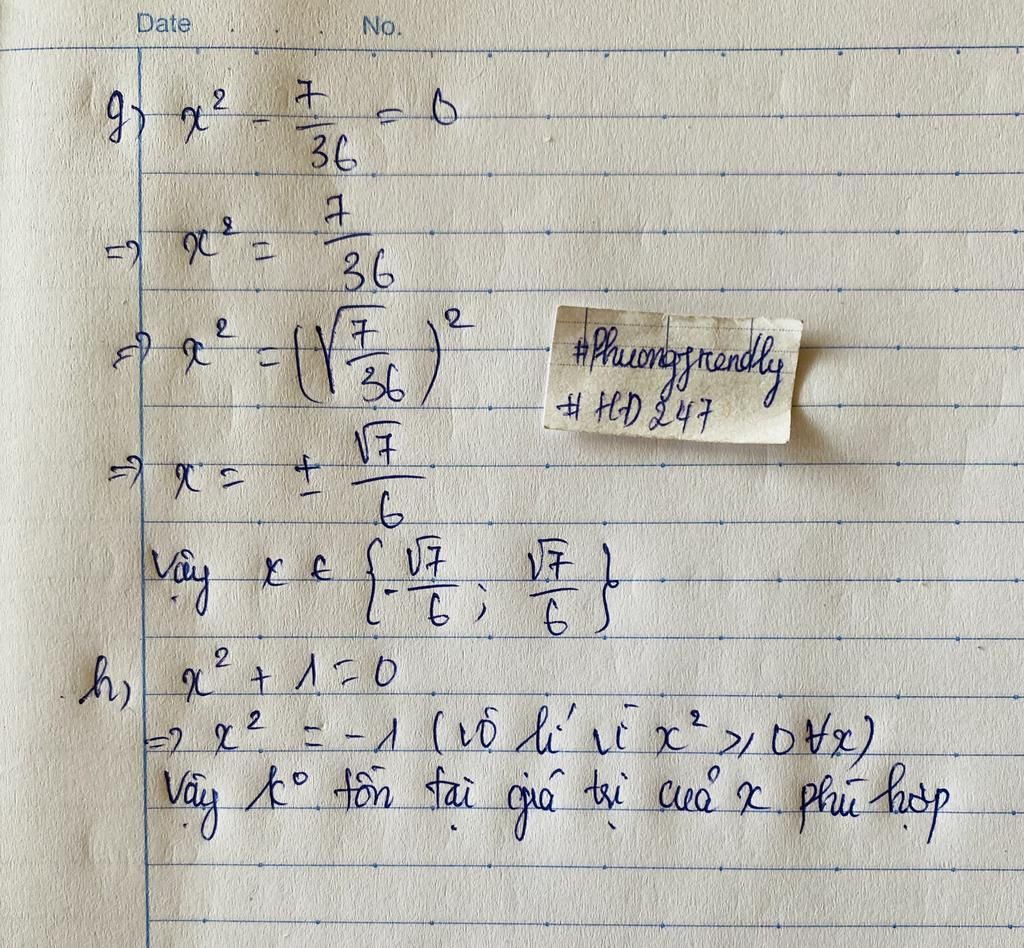 Date No.
g) x² - 7/36 = 0
=> x² = 7/36
=> x² = (√(7/36))²
#Phuongfrendly
# HD 247
=> x = ± √7/6
Vậy x ∈ {-√7/6 ; √7/6}
h, x² + 1 = 0
=> x² = -1 (vô lí vì x² ⩾ 0 ∀x)
Vậy k° tồn tại giá trị của x phù hợp